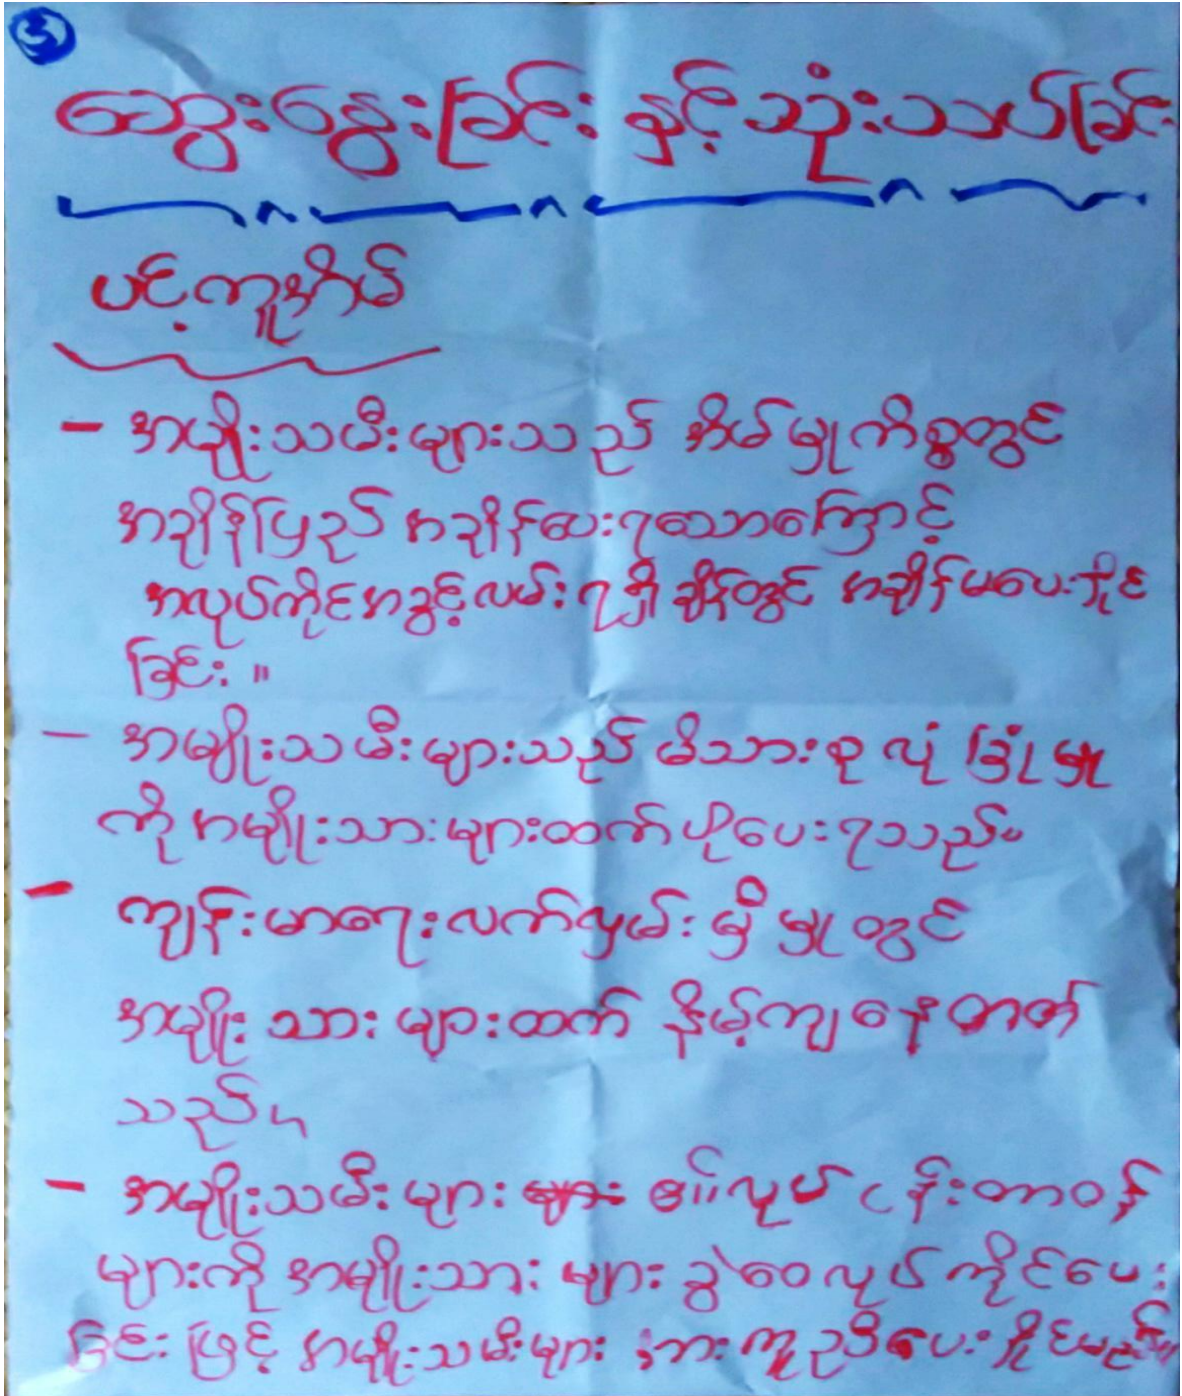 ၃
ဆွေးနွေးခြင်း နှင့် သုံးသပ်ခြင်း
ပင့်ကူအိမ်
- အမျိုးသမီးများသည် အိမ်မှုကိစ္စတွင်
အချိန်ပြည့် အချိန်ပေးရသောကြောင့်
အလုပ်ကိုင်အခွင့်လမ်းရရှိချိန်တွင် အချိန်မပေးနိုင်
ခြင်း။
- အမျိုးသမီးများသည် မိသားစုလုံခြုံမှု
ကို အမျိုးသားများထက်ပိုပေးရသည်။
- ကျန်းမာရေးလက်လှမ်းမှီမှုတွင်
အမျိုးသားများထက် နိမ့်ကျနေတတ်
သည်။
- အမျိုးသမီးများ ၏လုပ်ငန်းတာဝန်
များကို အမျိုးသားများ ခွဲဝေလုပ်ကိုင်ပေး
ခြင်းဖြင့် အမျိုးသမီးများ အားကူညီပေးနိုင်မည်။